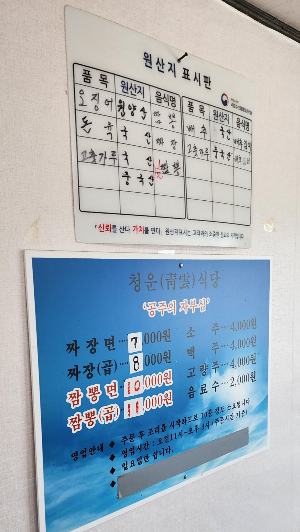 원산지 표시판
품 목 원산지 음식명 품 목 원산지 음식명
오징어 원양산 짬뽕 배추 국산
돈육 국산 짜장 고춧가루 중국산
고춧가루 국산
중국산
「신뢰를 산다. 가치를 판다.
청운(靑雲)식당
'공주의 자부심'
짜 장 면 … 7,000원 소 주 … 4,000원
짜장(곱) … 8,000원 맥 주 … 4,000원
짬 뽕 면 … 10,000원 고 량 주 … 4,000원
짬뽕(곱) … 11,000원 음 료 수 … 2,000원
영업안내 ◆ 주문 후 조리를 시작하므로 10분 정도 소요됩니다
◆ 영업시간 : 오전11시~오후4시(주문시간 기준)
◆ 일요일만 합니다.